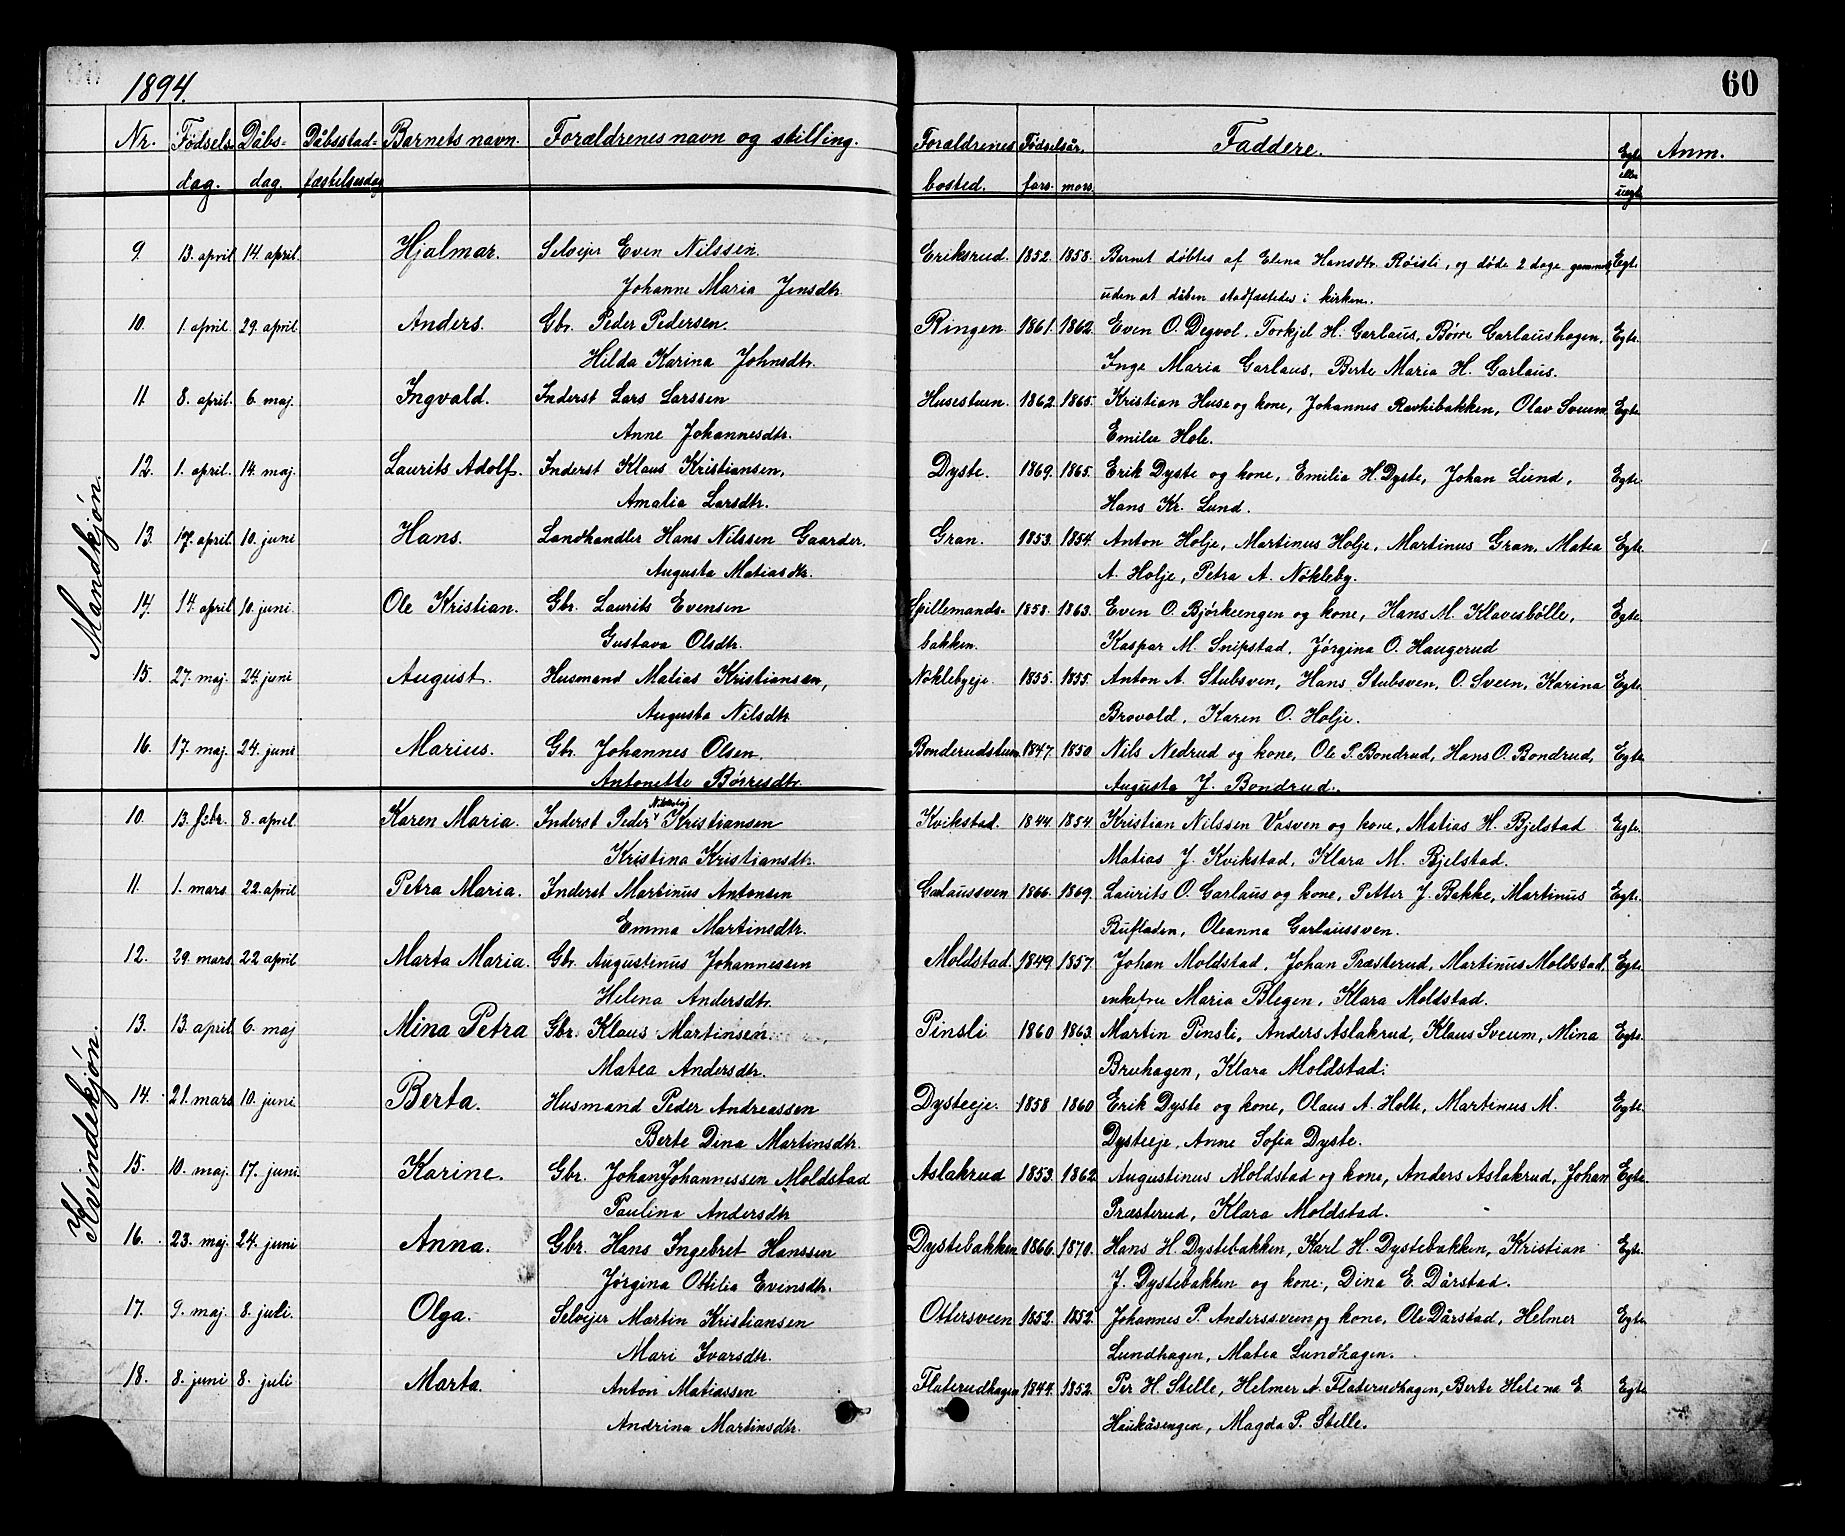 1894.
60
Nr. Fødsels- Dåbs- Dåbsstad- Barnets navn. Forældrenes navn og stilling. Forældrenes Fødselsår. Faddere. Egte Anm.
dag. dag. fæstelsesdag bosted. fars. mors. eller uegte
Mandkjøn.
9. 13. april 14. april. Hjalmar. Selveier Even Nilssen. Eriksrud. 1852. 1858. Barnet døbtes af Elena Hansdtr. Røisli, og døde 2 dage gammelt Egte.
Johanne Maria Jensdtr. uden at dåben stadfæstedes i kirken.
10. 1. april. 29. april. Anders. Gbr. Peder Pedersen. Ringen. 1861. 1862. Even O. Degvol, Torkjel H. Garlaus, Børre Garlaushagen, Egte.
Hilda Karina Johnsdtr. Inga Maria Garlaus, Berte Maria H. Garlaus.
11. 8. april. 6. maj. Ingvald. Inderst Lars Larssen Husestuen. 1862. 1865. Kristian Huse og kone, Johannes Ravhibakken, Olav Sveum Egte.
Anne Johannesdtr. Emilie Hole.
12. 1. april. 14. maj. Laurits Adolf. Inderst Klaus Kristiansen, Dyste. 1869. 1865. Erik Dyste og kone, Emilia H. Dyste, Johan Lund, Egte.
Amalia Larsdtr. Hans Kr. Lund.
13. 17. april. 10. juni Hans. Landhandler Hans Nilssen Gaarder. Gran. 1853. 1854. Anton Holje, Martinus Holje, Martinus Gran, Matea Egte.
Augusta Matiasdtr. A. Holje, Petra A. Nøkleby.
14. 14. april 10. juni. Ole Kristian. Gbr. Laurits Evensen Spillemands- 1858. 1863. Even O. Bjørkeengen og kone, Hans M. Klavesbølle, Egte.
Gustava Olsdtr. bakken. Kaspar M. Snipstad, Jørgina O. Haugerud
15. 27. maj. 24. juni August. Husmand Matias Kristiansen, Nøklebyeje. 1855. 1855. Anton A. Stubsven, Hans Stubsven, O. Sveen, Karina Egte.
Augusta Nilsdtr. Brovold, Karen O. Holje.
16. 17. maj. 24. juni Marius. Gbr. Johannes Olsen. Bonderudstuen 1847. 1850 Nils Nedrud og kone, Ole P. Bondrud, Hans O. Bondrud, Egte.
Antonette Børresdtr. Augusta J. Bondrud.
Kvindekjøn.
10. 13. febr. 8. april. Karen Maria. Inderst Peder Kristiansen Kvikstad. 1844. 1854. Kristian Nilssen Vasven og kone, Matias H. Bjelstad Egte.
Kristina Kristiansdtr. Matias J. Kvikstad, Klara M. Bjelstad.
11. 1. mars. 22. april Petra Maria. Inderst Martinus Antonsen Garlaussven 1866. 1869. Laurits O. Garlaus og kone, Petter J. Bakke, Martinus Egte.
Emma Martinsdtr. Bufladen, Oleanna Garlaussven.
12. 29. mars. 22 april Marta Maria. Gbr. Augustinus Johannessen Moldstad. 1849 1857. Johan Moldstad, Johan Præsterud, Martinus Moldstad, Egte.
Helena Andersdtr. enkefru Maria Blegen, Klara Moldstad.
13. 13. april 6. maj Mina Petra Gbr. Klaus Martinsen. Pinsli 1860 1863. Martin Pinsli, Anders Aslakrud, Klaus Sveum, Mina Egte.
Matea Andersdtr. Bruhagen, Klara Moldstad.
14. 21. mars 10. juni Berta. Husmand Peder Andreassen Dysteeje. 1858 1860 Erik Dyste og kone, Olaus A. Holte, Martinus M. Egte.
Berte Dina Martinsdtr. Dysteeje, Anne Sofia Dyste.
15. 10. maj. 17. juni. Karine. Gbr. Johan Johannessen Moldstad Aslakrud 1853. 1862. Augustinus Moldstad og kone, Anders Aslakrud, Johan Egte.
Paulina Andersdtr. Præsterud, Klara Moldstad.
16. 23. maj. 24. juni Anna. Gbr. Hans Ingebret Hanssen Dystebakken 1866. 1870. Hans H. Dystebakken, Karl H. Dystebakken, Kristian Egte.
Jørgina Ottilia Evinsdtr. J. Dystebakken og kone, Dina E. Dårstad.
17. 9. maj. 8. juli. Olga. Selveier Martin Kristiansen Ottersveen 1852. 1852. Johannes P. Anderssveen og kone, Ole Dårstad, Helmer Egte.
Mari Ivarsdtr. Lundhagen, Matea Lundhagen.
18. 8. juni 8. juli Marta. Anton Matiassen Flaterudhagen 1844. 1852. Per H. Stelle, Helmer A. Flaterudhagen, Berte Helena E. Egte.
Andrina Martinsdtr. Haukåsengen, Magda P. Stelle.